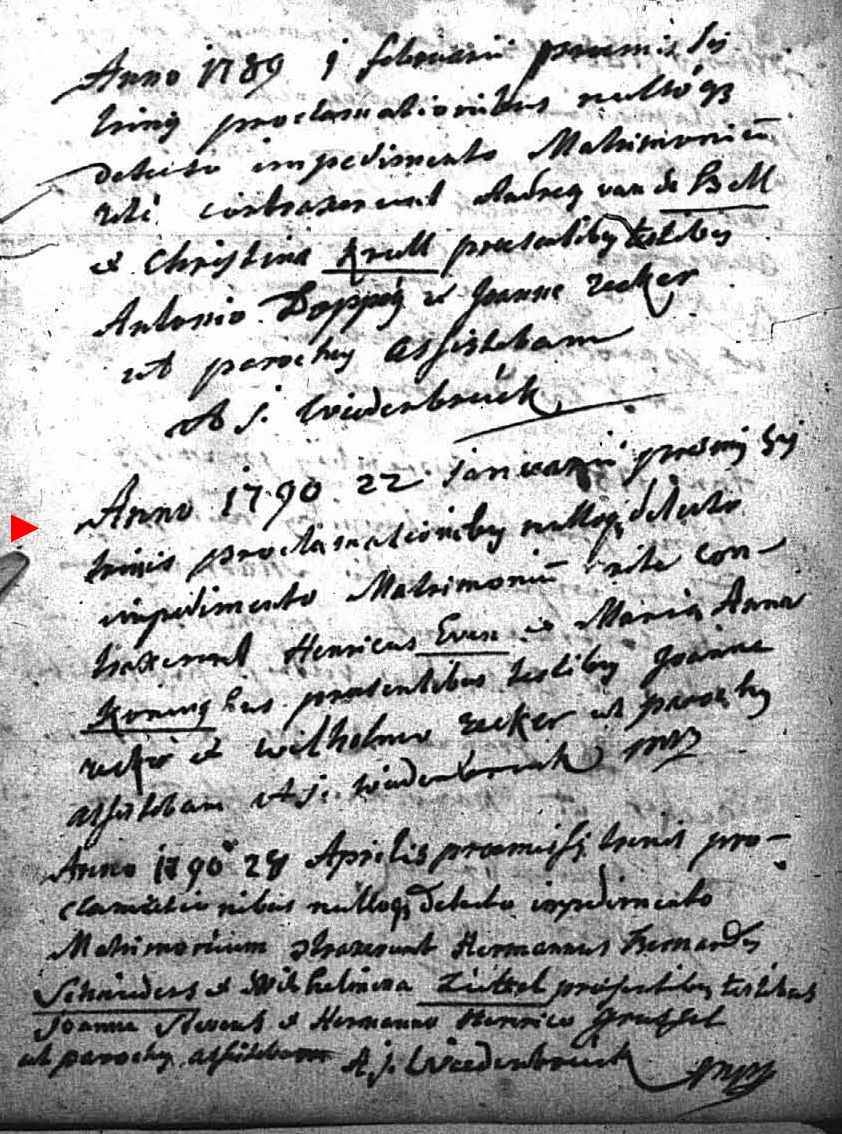 Anno 1789 9 februarii praemissis
trinis proclamationibus nulloq3
detecto impedimento Matrimoniū
rite contraxerunt Andreas van de Bell
et Christina Krull praesentibus testibus
Antonio et Joanne recker
ut parochus assistebam
A J. Wiedenbrück
Anno 1790 22 januarii praemissis
trinis proclamationibus nulloq detecto
impedimento Matrimoniū rite con-
traxerunt Henricus Evers et Maria Anna
Koning praesentibus testibus Joanne
recker et wilhelmo recker ut parochus
assistebam A J. wiedenbrück mpp
Anno 1790 28 Aprilis praemissis trinis pro-
clamationibus nulloq detecto impedimento
Matrimonium Hermannus Bernardus
Schnieders et Wilhelmina praesentibus testibus
Joanne Stevens et Hermanno Henrico
ut parochus assistebam A. J. Wiedenbrück mpp